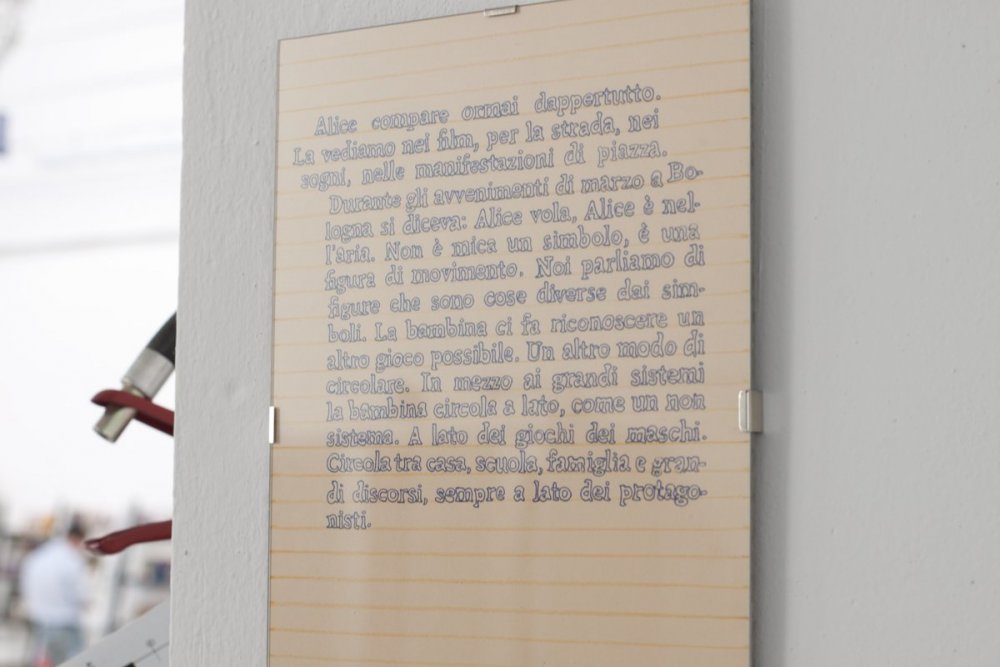 Alice compare ormai dappertutto.
La vediamo nei film, per la strada, nei
sogni, nelle manifestazioni di piazza.
Durante gli avvenimenti di marzo a Bo-
logna si diceva: Alice vola, Alice è nel-
l'aria. Non è mica un simbolo, è una
figura di movimento. Noi parliamo di
figure che sono cose diverse dai sim-
boli. La bambina ci fa riconoscere un
altro gioco possibile. Un altro modo di
circolare. In mezzo ai grandi sistemi
la bambina circola a lato, come un non
sistema. A lato dei giochi dei maschi.
Circola tra casa, scuola, famiglia e gran-
di discorsi, sempre a lato dei protago-
nisti.